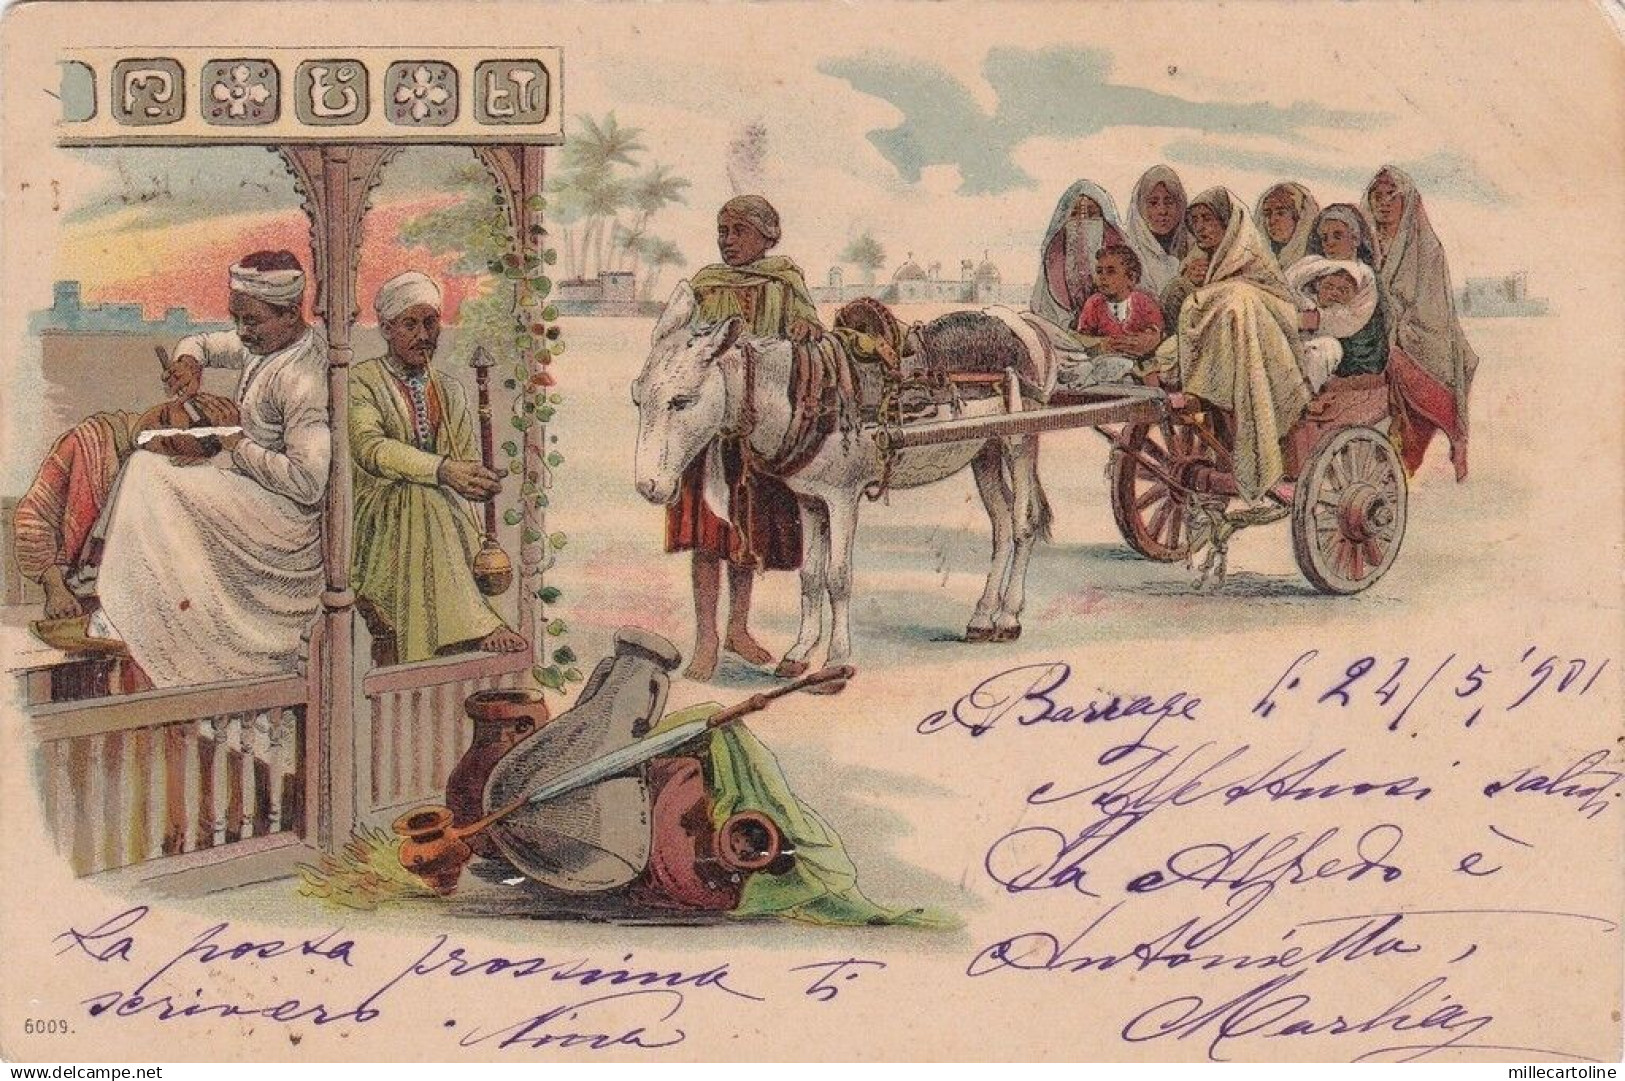 Barrage li 24/5, '901
Affettuosi saluti
Da Alfredo è
Antonietta,
La posta prossima ti
scrivero. Nina
6009.
millecartoline